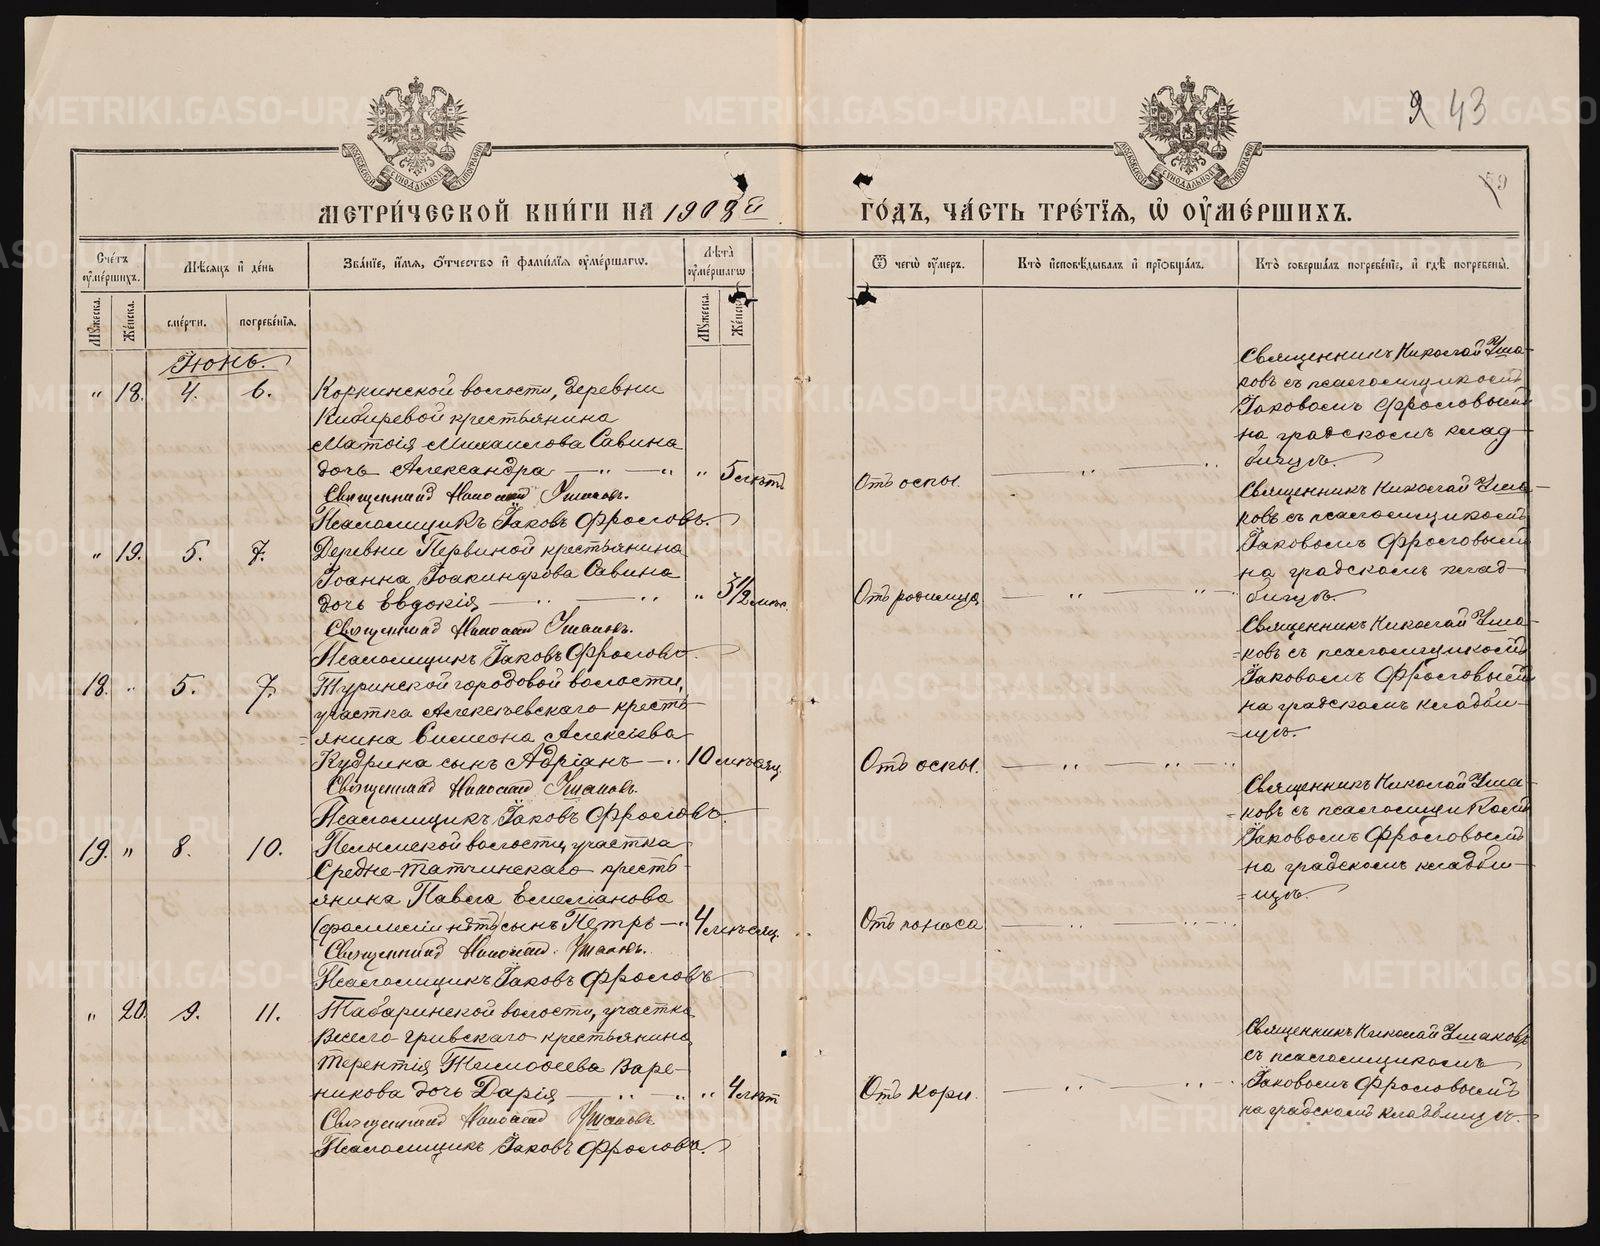 243
59
МЕТРИ́ЧЕСКОЙ КНИ́ГИ НА 1908й
ГО́ДЪ, ЧА́СТЬ ТРЕ́ТЇѦ, Ѽ ОУ҆МЕ́РШИХЪ.
Сче́тъ оу҆ме́ршихъ.
Мѣ́сяцъ и҆ де́нь
Зва́нїе, и҆́мѧ, ѻ҆́тчество и҆ фами́лїѧ оу҆ме́ршагѡ.
Лѣ́та оу҆ме́ршагѡ
Ѿ чегѡ̀ оу҆́меръ.
Кто̀ и҆сповѣ́дывалъ и҆ прїѡбща́лъ.
Кто̀ соверша́лъ погребе́нїе, и҆ гдѣ̀ погребены̀.
Мꙋ́жеска.
Же́нска.
сме́рти.
погребе́нїѧ.
Мꙋ́жеска.
Же́нска.
Іюнь.
" 18. 4. 6. Коркинской волости, деревни
Кибиревой крестьянина
Матѳія Михаилова Савина
дочь Александра — " — " " 5 лѣтъ
Священникъ Николай Ушаковъ.
Псаломщикъ Іаковъ Фроловъ.
Отъ оспы. — " — "
Священникъ Николай Уша-
ковъ съ псаломщикомъ
Іаковомъ Фроловымъ
на градскомъ клад
бищѣ.
" 19. 5. 7. Деревни Первиной крестьянина
Іоанна Іоакинфова Савина
дочь Евдокія — " — " " 3½ мѣс.
Священникъ Николай Ушаковъ.
Псаломщикъ Іаковъ Фроловъ.
Отъ родимца — " — "
Священникъ Николай Уша-
ковъ съ псаломщикомъ
Іаковомъ Фроловымъ
на градскомъ клад-
бищѣ.
18. " 5. 7. Туринской городовой волости,
участка Алексѣевскаго кресть-
=янина Симеона Алексіева
Кудрина сынъ Адріанъ — " 10 мѣсяц.
Священникъ Николай Ушаковъ.
Псаломщикъ Іаковъ Фроловъ.
Отъ оспы. — " — "
Священникъ Николай Уша-
=ковъ съ псаломщикомъ
Іаковомъ Фроловымъ
на градскомъ кладби-
=щѣ.
19. " 8. 10. Пелымской волости, участка
Средне-Татчинскаго кресть-
янина Павла Емеліанова
(фамиліи нѣтъ) сынъ Петръ — " 4 мѣсяц.
Священникъ Николай Ушаковъ.
Псаломщикъ Іаковъ Фроловъ
Отъ поноса — " — "
Священникъ Николай Уша-
=ковъ съ псаломщикомъ
Іаковомъ Фроловымъ
на градскомъ кладби-
=щѣ.
" 20. 9. 11. Табаринской волости, участка
гривскаго крестьянина
Терентія Тимоѳеева Варе-
никова дочь Дарія — " — " " 4 лѣт
Священникъ Николай Ушаковъ
Псаломщикъ Іаковъ Фроловъ.
Отъ кори. — " — "
Священникъ Николай Ушаковъ
съ псаломщикомъ
Іаковомъ Фроловымъ
на градскомъ кладбищѣ.
METRIKI.GASO-URAL.RU